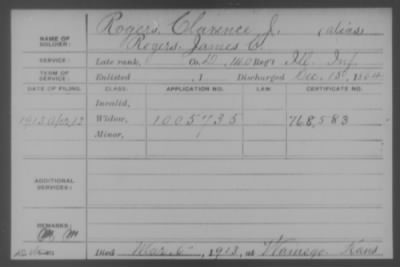 NAME OF SOLDIER: Rogers, Clarence J. (alias)
Rogers, James C.
SERVICE: Late rank, Co. D, 140 Reg't Ill. Inf.
TERM OF SERVICE: Enlisted , 1 Discharged Dec. 15, 1864
DATE OF FILING. CLASS. APPLICATION NO. LAW. CERTIFICATE NO.
Invalid,
1912 Apr. 12 Widow, 1005735 768,583
Minor,
ADDITIONAL SERVICES:
REMARKS:
Died Mar. 6, 1913, at Wamego Kans